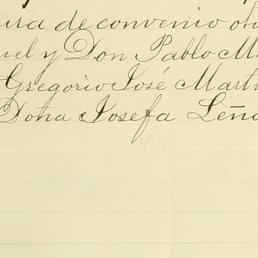 ura de convenio otor
uel y Don Pablo Ma
Gregorio José Mart
Doña Josefa Leña